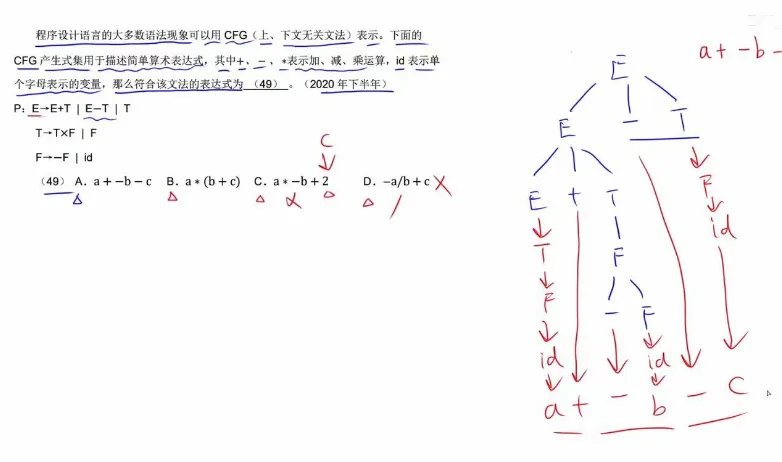 程序设计语言的大多数语法现象可以用 CFG（上、下文无关文法）表示。下面的
CFG 产生式集用于描述简单算术表达式，其中+、-、*表示加、减、乘运算，id 表示单
个字母表示的变量，那么符合该文法的表达式为 （49） 。（2020 年下半年）
P：E→E+T | E−T | T
T→T×F | F
F→−F | id
C
（49） A．a + −b − c B．a ∗ (b + c) C．a ∗ −b + 2 D．−a/b + c
a + - b -
E
E - T
E + T F
T F id
F - F
id id
a + - b - c